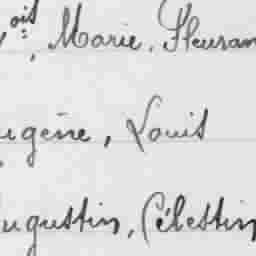 ois, Marie, Fleuran
ugène, Louis
ugustin, Célestin